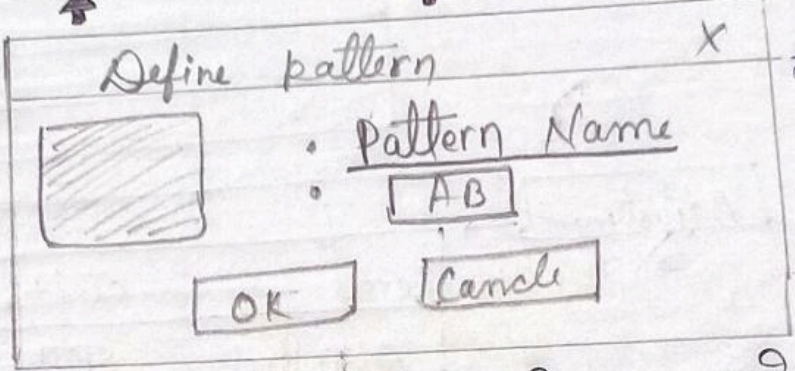 Define pattern X
Pattern Name
AB
OK Cancle